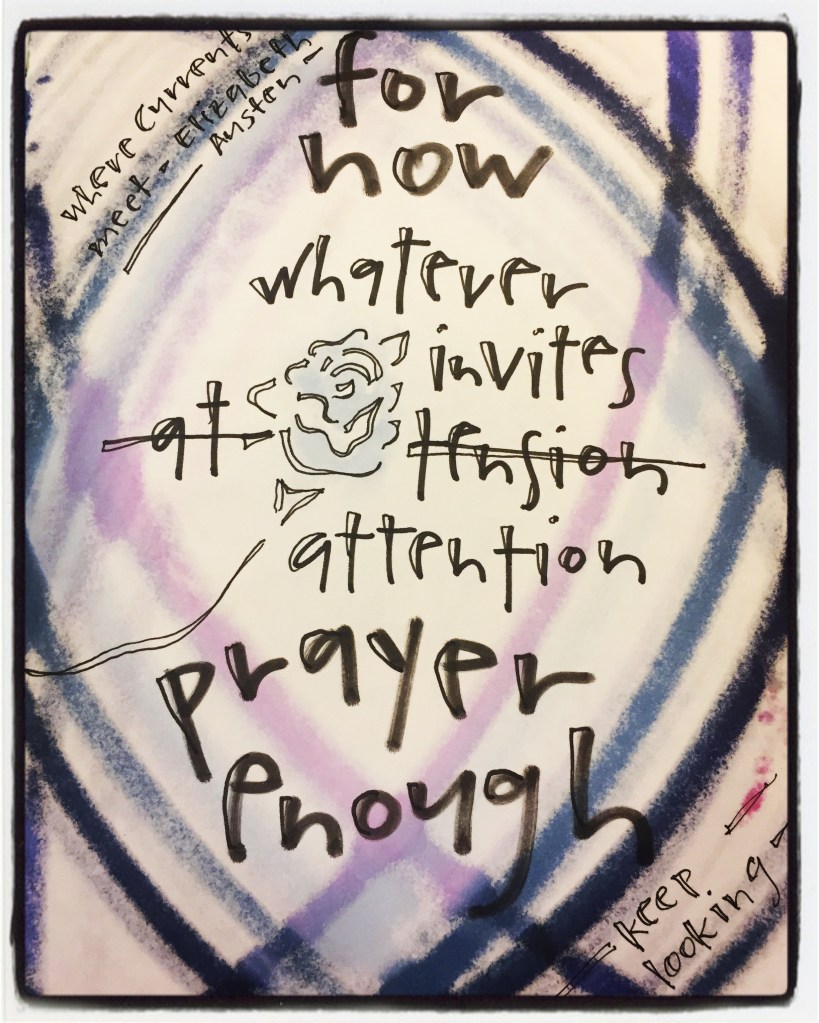 where Currents
meet - Elizabeth
Austen -
for
now
whatever
invites
at tension
attention
prayer
enough
- keep.
looking -